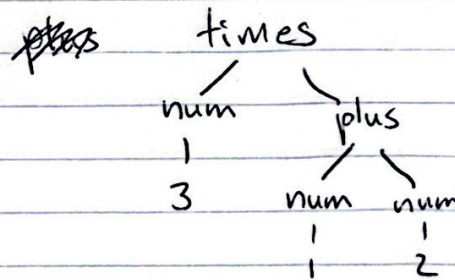 times
num plus
3 num num
1 2